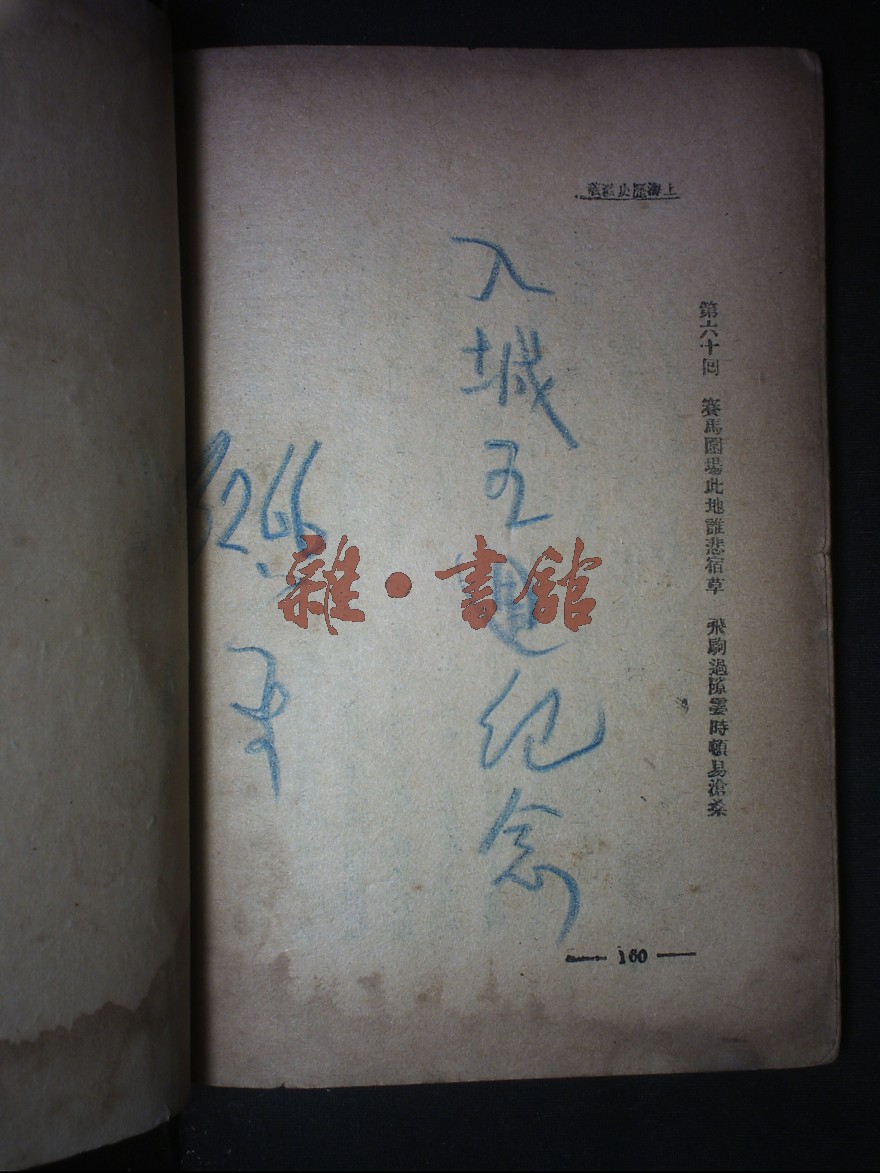 上海歷史演義
第六十回 賽馬圍場此地誰悲宿草 飛駒過隙霎時頓易滄桑
入城五週纪念
雜·書館
— 160 —